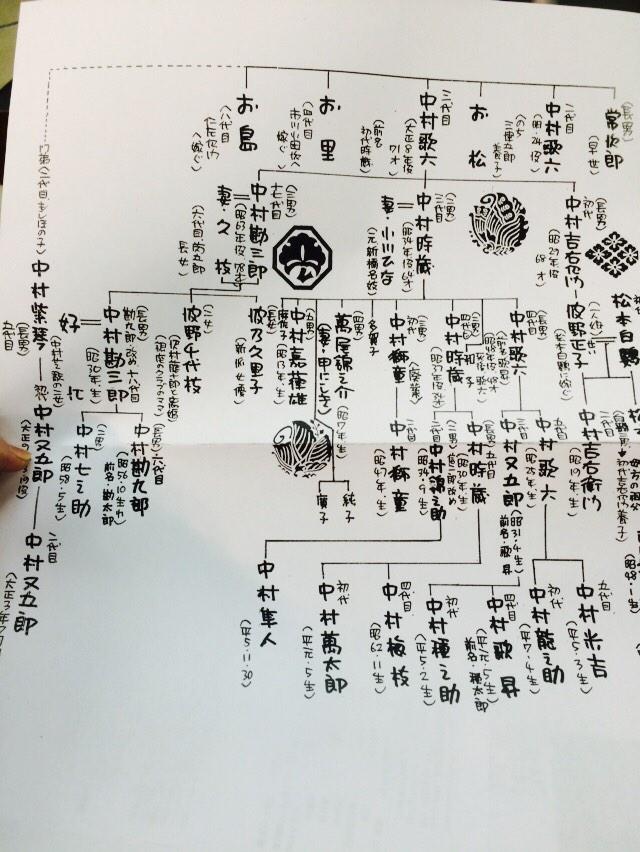 (長男)
常次郎
(早世)
二代目
中村歌六
(昭・24没)
(のち
三津五郎
養子)
お松
三代目
中村歌六
(大正8年没
71才)
(前名
初代時蔵)
お里
(四代目
市川小団次へ
嫁ぐ)
お島
(八代目
仁左衛門
へ嫁ぐ)
松本白鸚
(長男)
初代
中村吉右衛門
(昭29年没
68才)
波野正子
(一人娘)
(松本白鸚に嫁ぐ)
(二男)
三代目
中村時蔵
(昭34年没64才)
妻・小川ひな
(元新橋名妓)
(三男)
十七代目
中村勘三郎
(昭63年没78才)
妻・久枝
(六代目菊五郎
長女)
二代目
中村吉右衛門
(昭19年生)
中村歌六
四代目
中村時蔵
(昭37年没34才)
初代
中村獅童
多賀子
萬屋錦之介
(昭7年生)
(妻・甲にしき)
(五男)
中村嘉葎雄
(昭13年生)
(長女)
波乃久里子
(新派女優)
(二女)
波野千代枝
(長男)
勘九郎改め十八代目
中村勘三郎
(昭30年生)
好江
(中村芝翫の二女)
弟(二代目・もしほの子)
中村紫琴
五代目
中村歌六
(昭25年生)
三代目
中村又五郎
(昭31・4生)
前名・歌昇
(長男)五代目
中村時蔵
(昭30年生)
(二男)信二郎改め
二代目
中村錦之助
(昭34・9生)
二代目
中村獅童
(昭47年生)
純子
廣子
(長男)六代目
中村勘九郎
(昭56・10生れ)
前名・勘太郎
(二男)
中村七之助
(昭58・5生)
初代
中村又五郎
二代目
中村又五郎
五代目
中村米吉
(平5・3生)
初代
中村龍之助
(平7・4生)
四代目
中村歌昇
(平・元・5生)
前名・種太郎
初代
中村種之助
(平5・2生)
四代目
中村梅枝
(昭62・11生)
初代
中村萬太郎
(平・元・5生)
中村隼人
(平5・11・30)